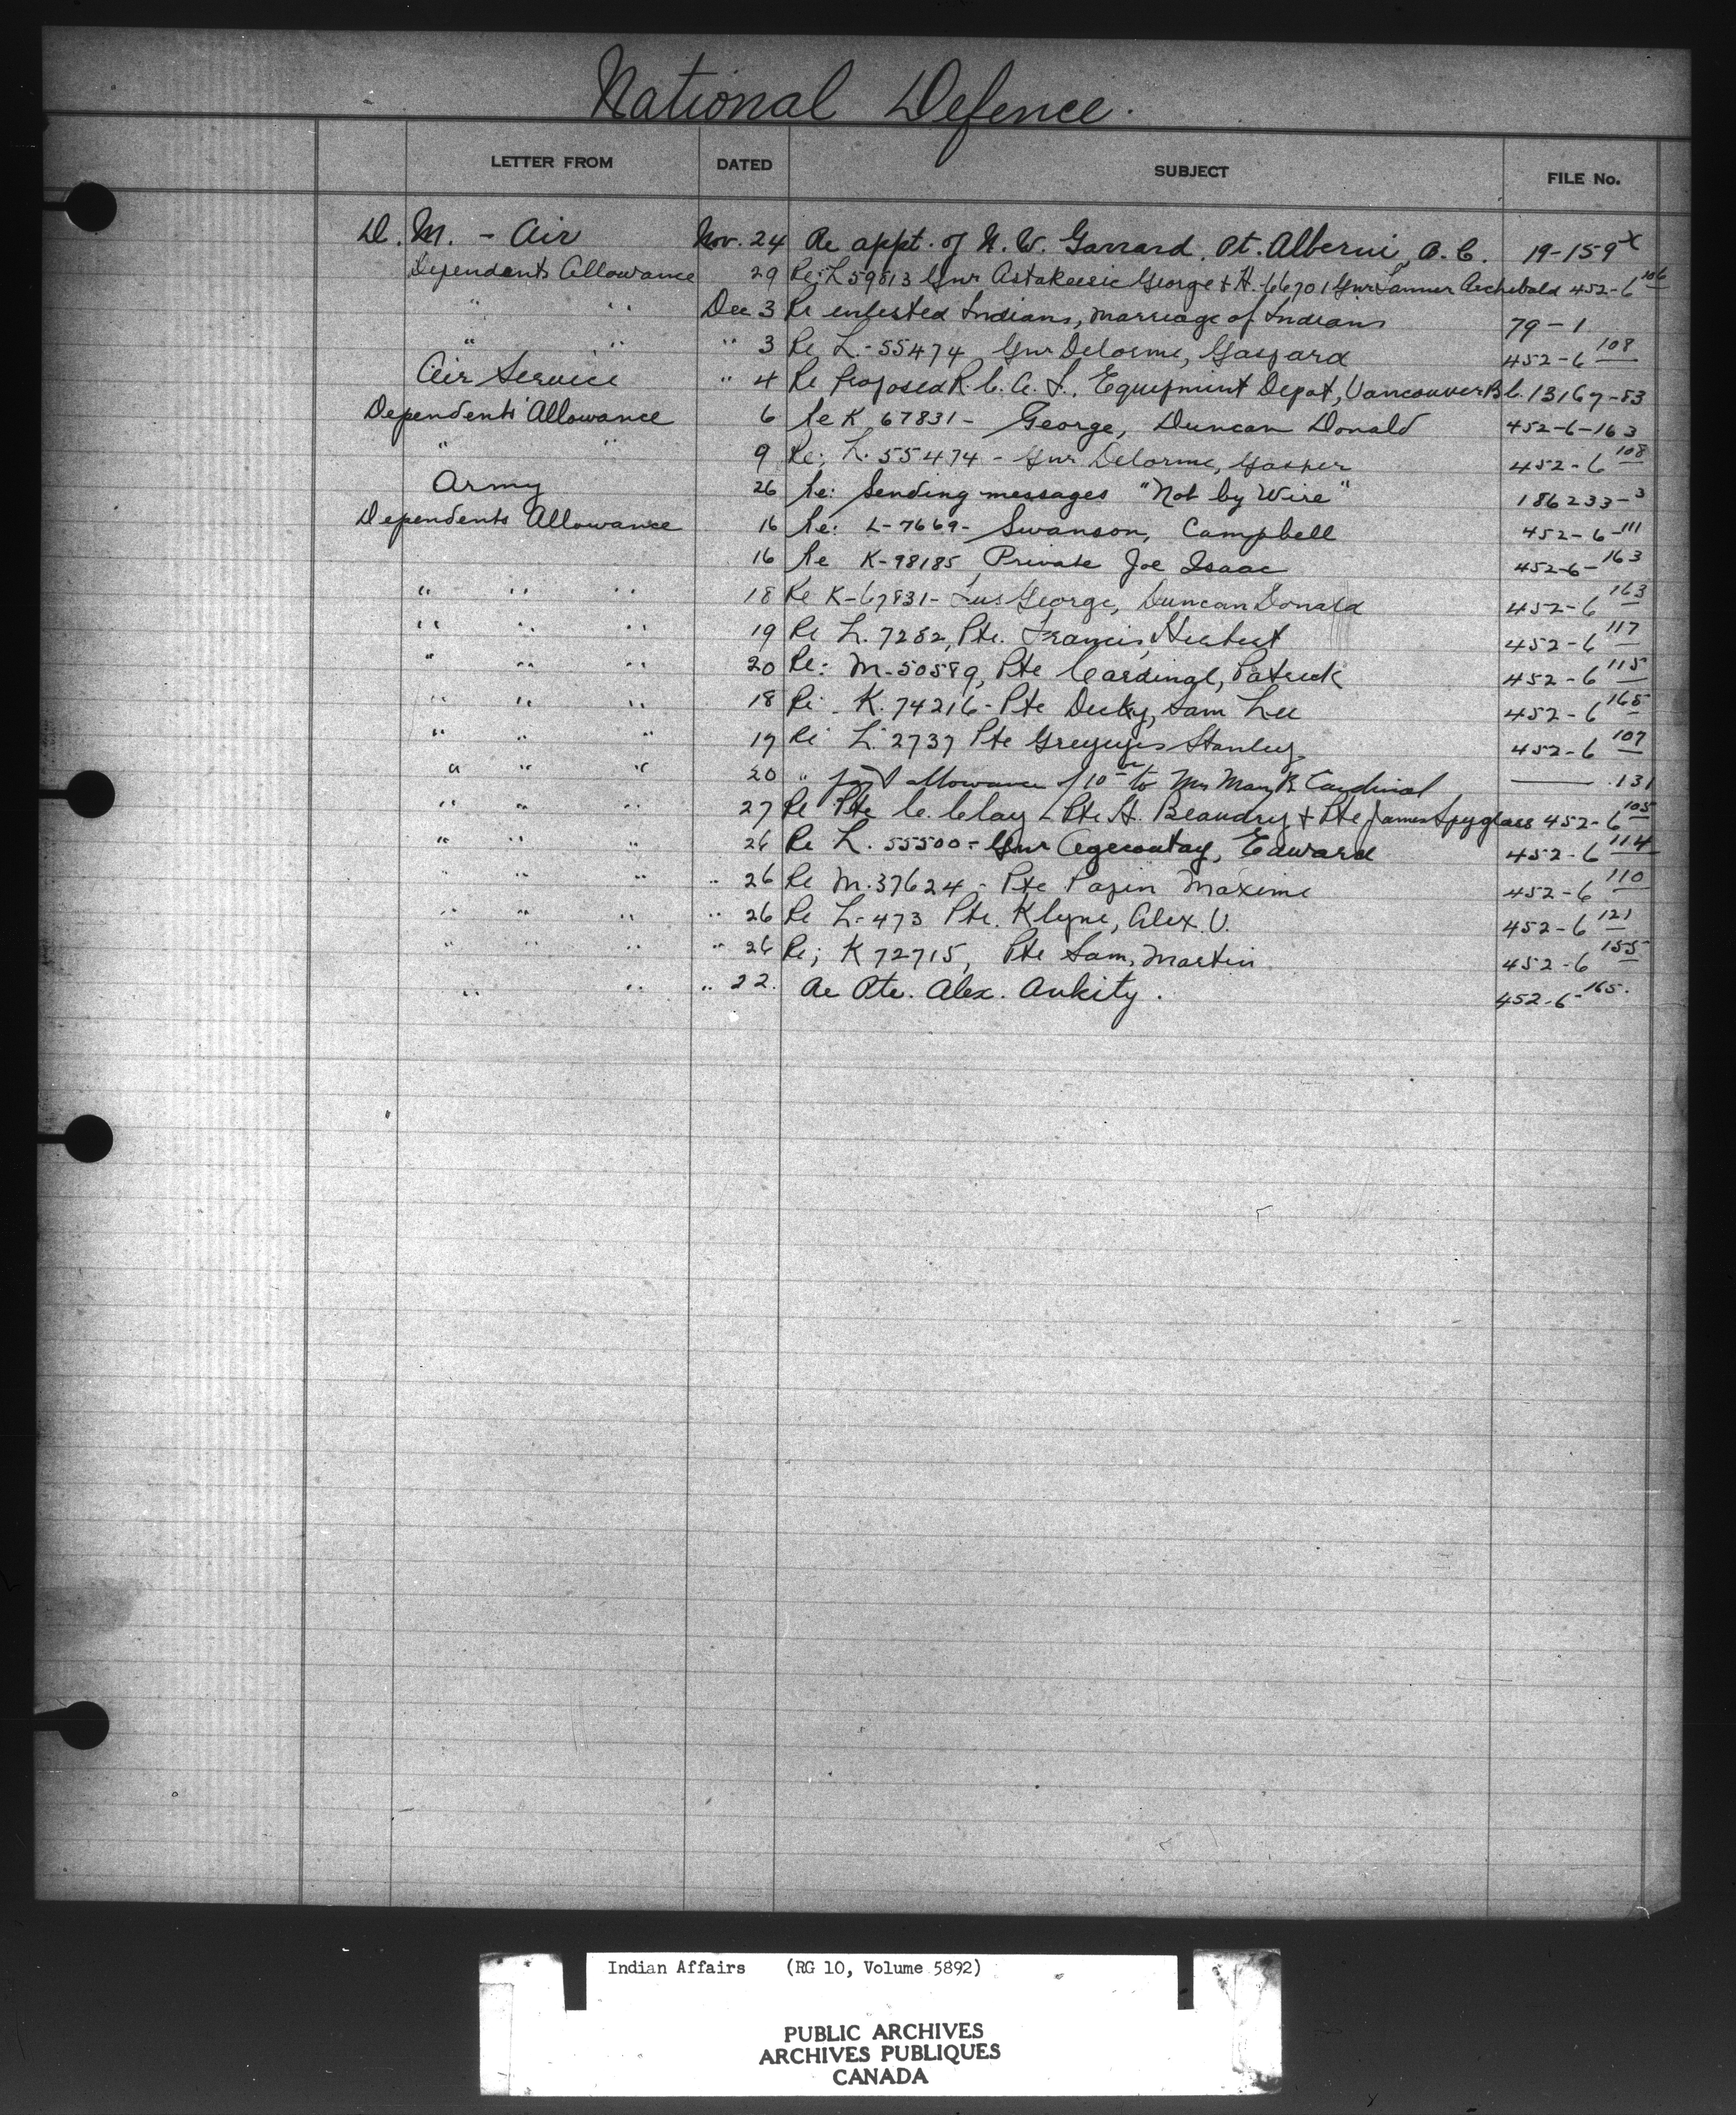 National Defence.
LETTER FROM DATED SUBJECT FILE No.
D. M. - Air Nov. 24 Re appt. of N. W. Garrard. Pt. Alberni, B. C. 19-159 X
Dependents Allowance 29 Re: L 59813 Gnr Astakeesic George & H. 66701 Gnr Tanner Archibald 452-6 106
" " Dec 3 Re enlisted Indians, marriage of Indians 79-1
" " " 3 Re L.-55474 Gnr Delorme, Gaspard 452-6 108
Air Service " 4 Re Proposed R.C.A.F. Equipment Depot, Vancouver B.C. 13167-83
Dependents' Allowance 6 Re K 67831- George, Duncan Donald 452-6-163
" " 9 Re; L. 55474 - Gnr Delorme, Gasper 452-6 108
Army 26 Re: Sending messages "Not by Wire" 186233-3
Dependents Allowance 16 Re: L-7669- Swanson, Campbell 452-6-111
16 Re K-98185 Private Joe Isaac 452-6-163
" " " 18 Re K-67831- George, Duncan Donald 452-6 163
" " " 19 Re L. 7282, Pte. Francis, Herbert 452-6 117
" " " 20 Re: M-50589, Pte Cardinal, Patrick 452-6 115
" " " 18 Re - K. 74216 - Pte Sam Lee 452-6 165
" " " 19 Re L. 2737 Pte Stanley 452-6 107
" " " 20 " allowance of 10 to Mrs Mary B. Cardinal ——— .131
" " " 27 Re Pte C. Clay - Pte H. Beaudry & Pte James Spyglass 452-6 105
" " " 26 Re L. 55500 - Gnr Agecoutay, Edward 452-6 114
" " " " 26 Re M. 37624 - Pte Papin Maxime 452-6 110
" " " " 26 Re L-473 Pte. Klyne, Alex. V. 452-6 121
" " " " 26 Re; K 72715, Pte Sam, Martin 452-6 155
" " " 22. Re Pte. Alex. Ankity. 452-6-165.
Indian Affairs (RG 10, Volume 5892)
PUBLIC ARCHIVES
ARCHIVES PUBLIQUES
CANADA